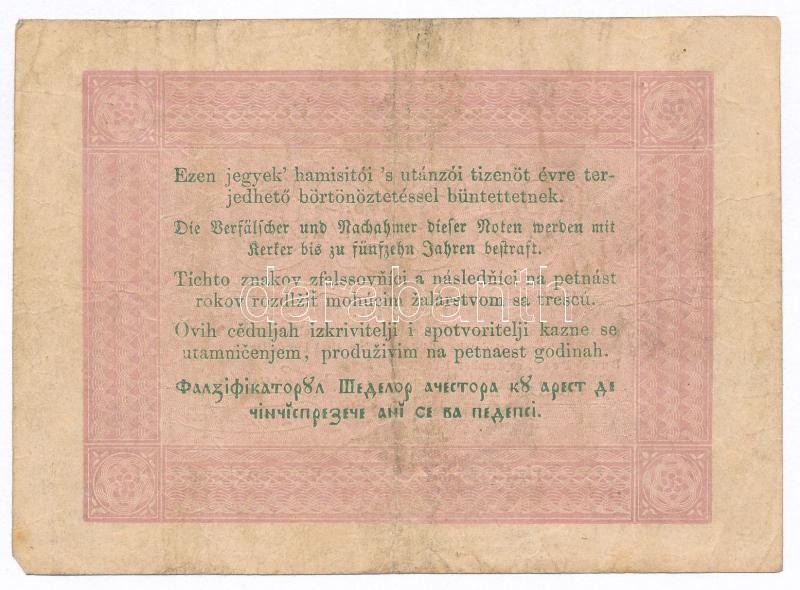 Ezen jegyek' hamisitói 's utánzói tizenöt évre ter-
jedhető börtönöztetéssel büntettetnek.
Die Verfälscher und Nachahmer dieser Noten werden mit
Kerker bis zu fünfzehn Jahren bestraft.
Tichto znakov zfelssovňíci a následňíci na petnást
rokov rozdlžiť mohúcim žalárstvom sa trescú.
darabanth
Ovih cěduljah izkrivitelji i spotvoritelji kazne se
utamničenjem, produživim na petnaest godinah.
Фалꙁіфікаторꙋл Шеделор ачестора кꙋ арест де
чінчїспреꙁече анї се ва педепсі.